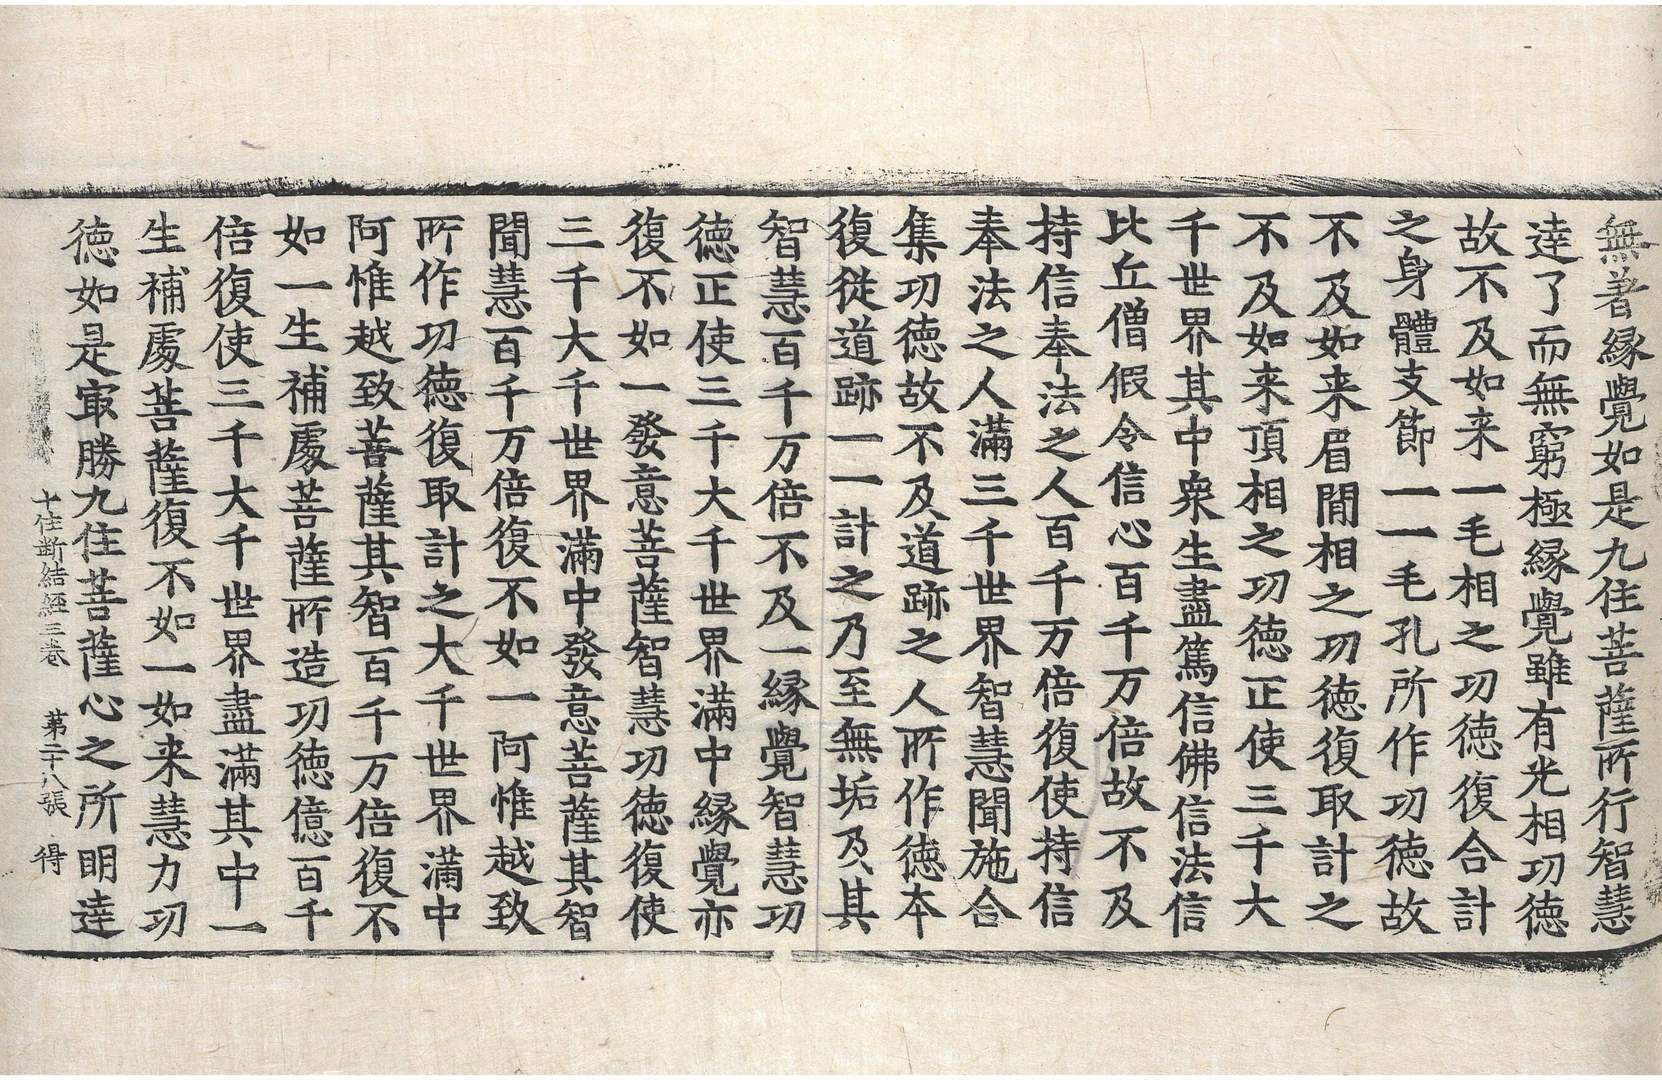 無著縁覺如是九住菩薩所行智慧
逹了而無窮極縁覺雖有光相功徳
故不及如来一毛相之功徳復合計
之身體支節一一毛孔所作功徳故
不及如来眉閒相之功徳復取計之
不及如来頂相之功徳正使三千大
千世界其中衆生盡篤信佛信法信
比丘僧假令信心百千万倍故不及
持信奉法之人百千万倍復使持信
奉法之人滿三千世界智慧聞施合
集功徳故不及道跡之人所作徳本
復從道跡一一計之乃至無垢及其
智慧百千万倍不及一縁覺智慧功
德正使三千大千世界滿中縁覺亦
復不如一發意菩薩智慧功徳復使
三千大千世界滿中發意菩薩其智
聞慧百千万倍復不如一阿惟越致
所作功徳復取計之大千世界滿中
阿惟越致菩薩其智百千万倍復不
如一生補處菩薩所造功徳億百千
倍復使三千大千世界盡滿其中一
生補處菩薩復不如一如来慧力功
徳如是㝡勝九住菩薩心之所明逹
十住断結經三卷 第二十八張 得